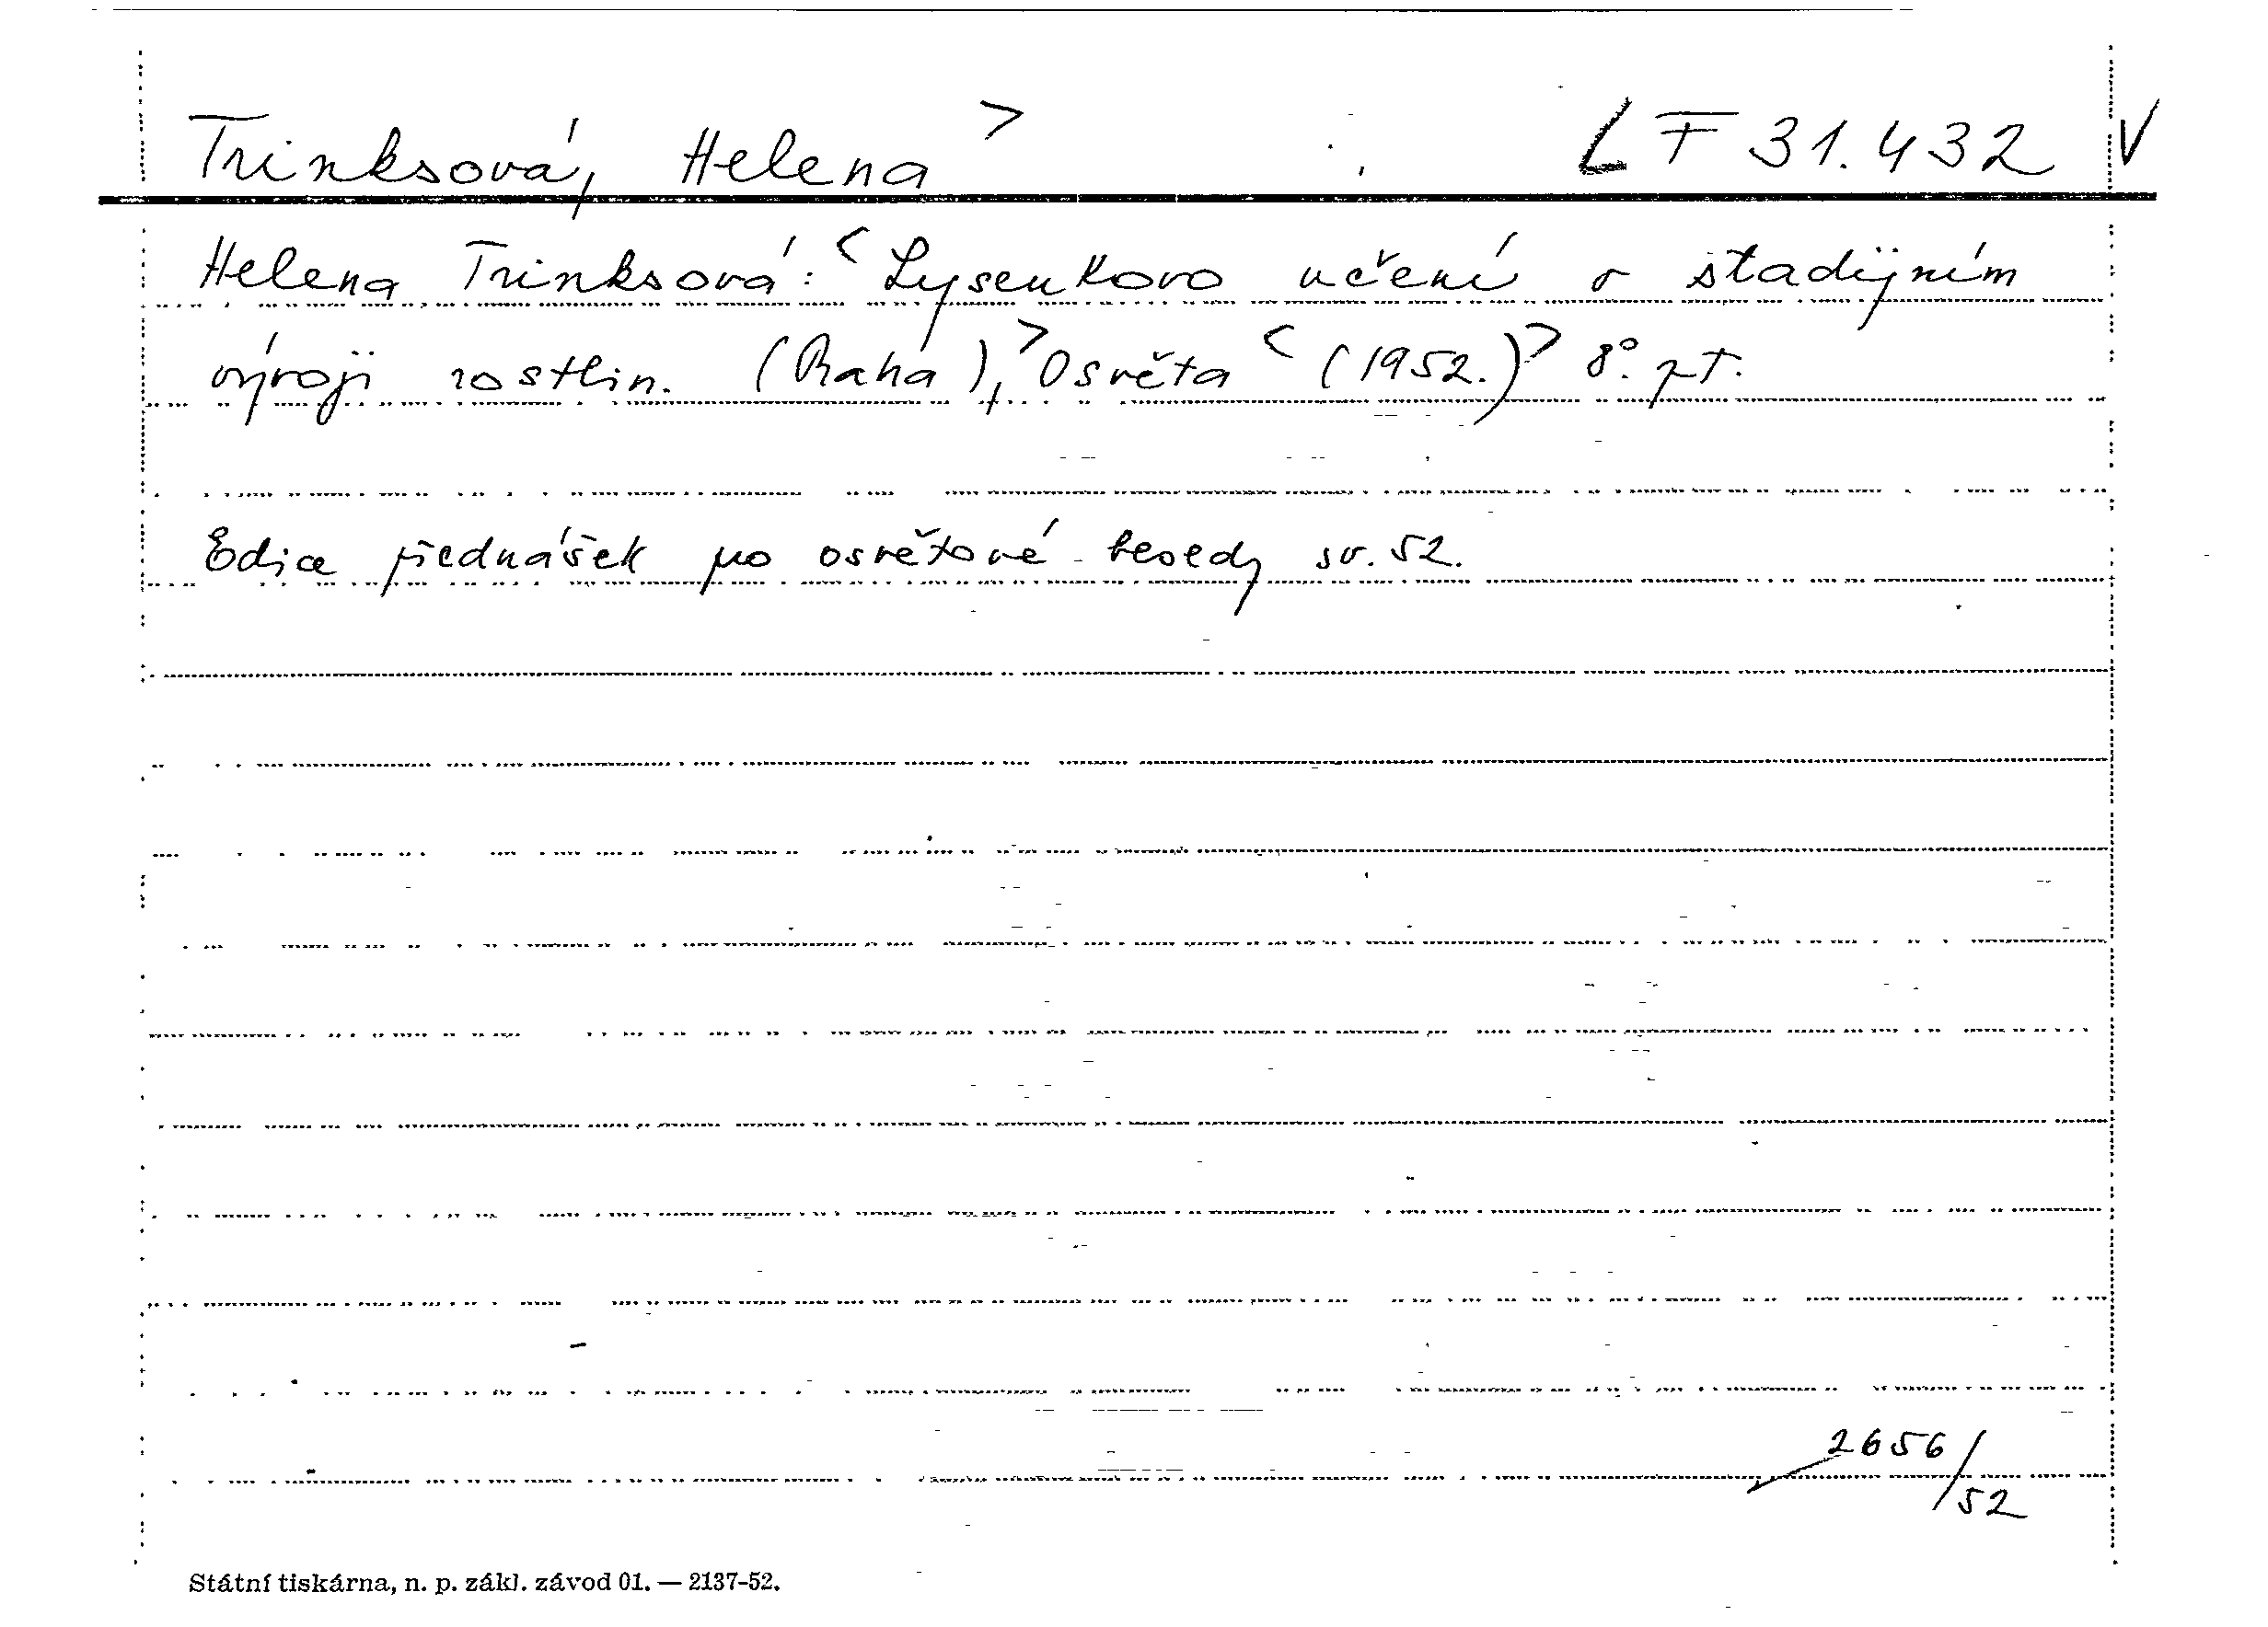 Trinksová, Helena> LF 31.432 V
Helena Trinksová: <Lysenkovo učení o stadijním
vývoji rostlin. (Praha),> Osvěta <(1952.)> 8°.
Edice přednášek pro osvětové besedy sv. 52.
2656/52
Státní tiskárna, n. p. zákl. závod 01. — 2137-52.